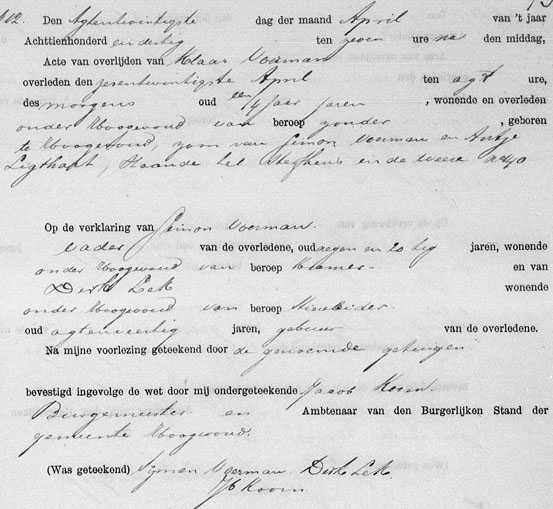 102. Den Agtentwintigste dag der maand April van 't jaar
Achttienhonderd en dertig ten zeven ure na den middag,
Acte van overlijden van Klaas Voorman
overleden den zesentwintigste April ten agt ure,
des morgens oud een 1/4 jaar jaren, wonende en overleden
onder Hoogwoud van beroep zonder, geboren
te Hoogwoud, zoon van Seimon Voorman en Antje
Ligthart, Staande het en de Weere
Op de verklaring van Seimon Voorman.
vader van de overledene, oud negen en 20 tig jaren, wonende
onder Hoogwoud van beroep Kramer en van
Dirk Lek wonende
onder Hoogwoud van beroep
oud agtenveertig jaren, gebuur van de overledene.
Na mijne voorlezing geteekend door de genoemde getuigen
bevestigd ingevolge de wet door mij ondergeteekende Jacob Koorn.
Burgemeester en Ambtenaar van den Burgerlijken Stand der
gemeente Hoogwoud.
(Was geteekend) Sijmen Voerman Dirk Lek
Jb Koorn